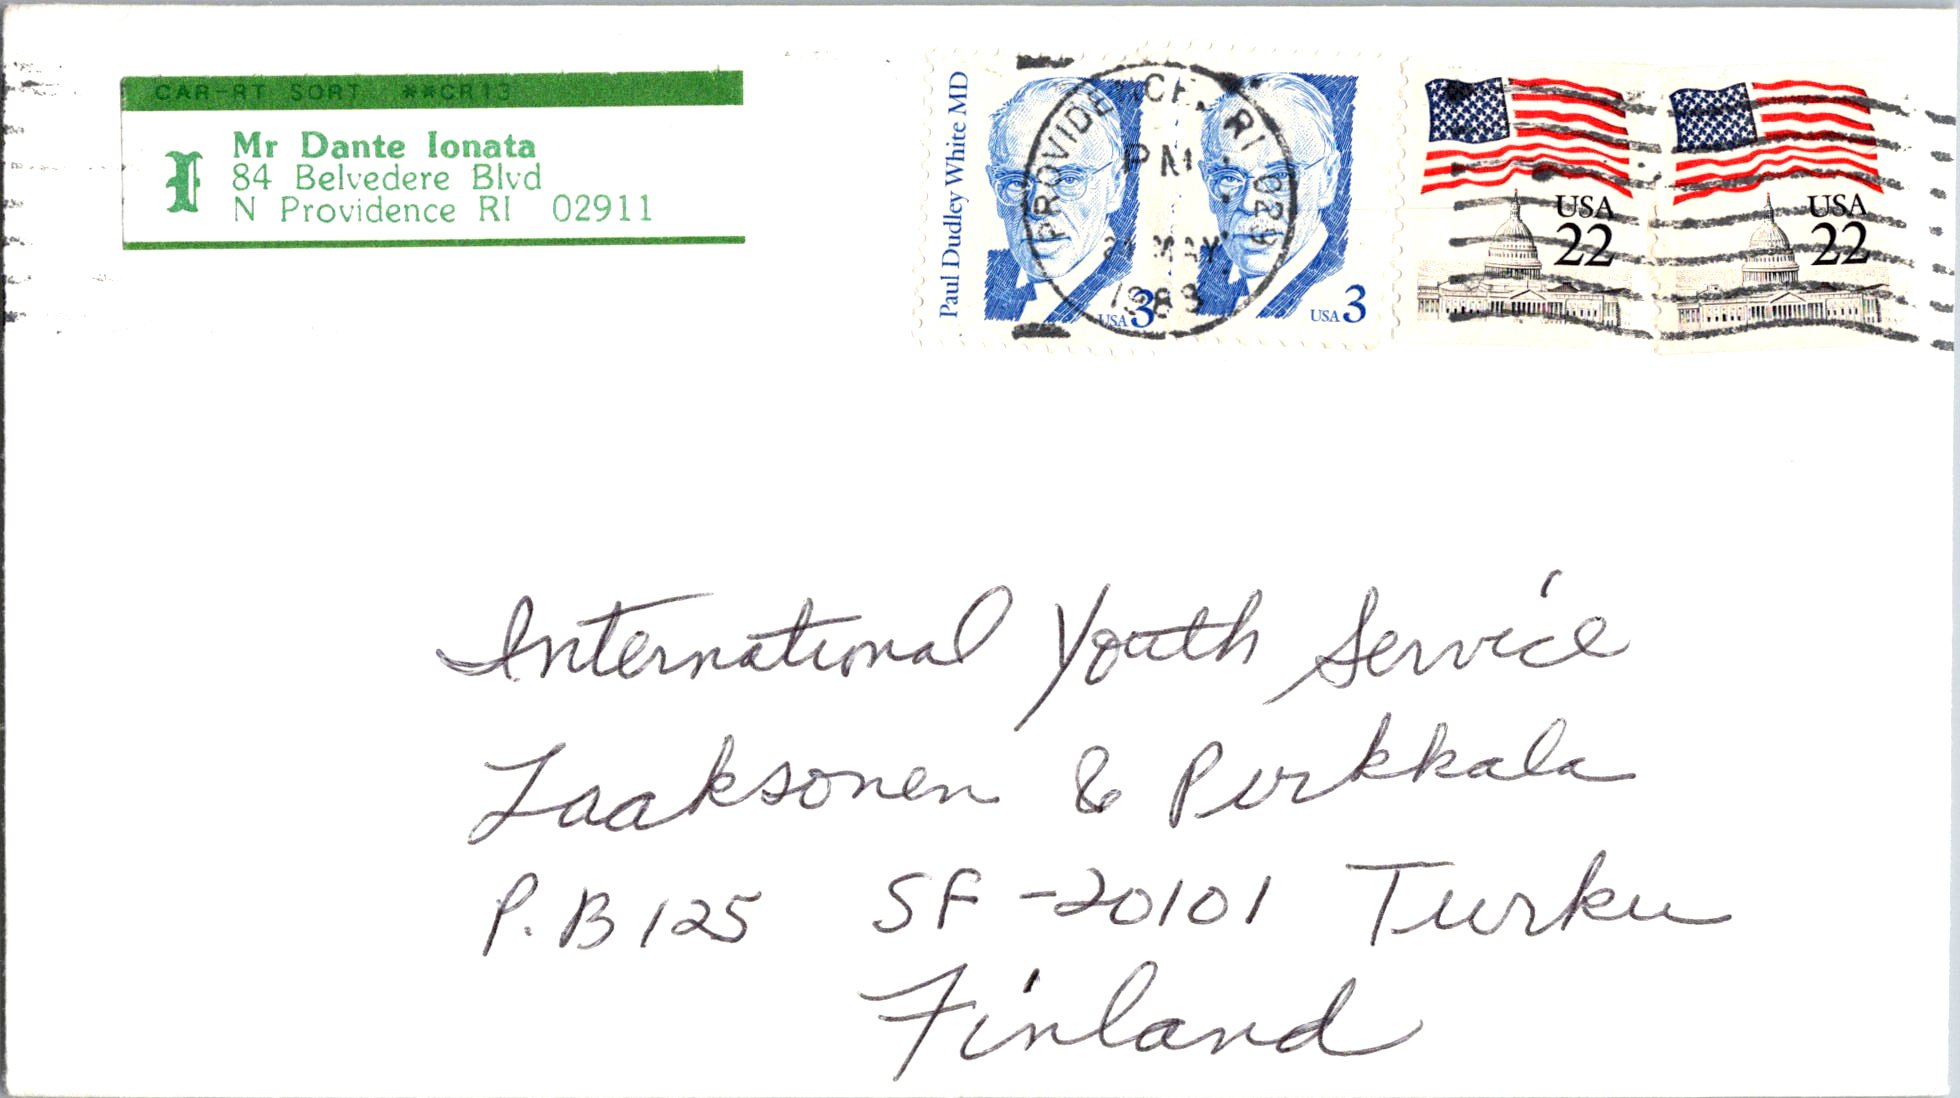 CAR-RT SORT **CR13
I
Mr Dante Ionata
84 Belvedere Blvd
N Providence RI 02911
Paul Dudley White MD
USA 3
USA 3
PROVIDENCE, RI 029
PM
MAY
198
USA
22
USA
22
International Youth Service
Laaksonen & Pirkkala
P.B 125 SF-20101 Turku
Finland